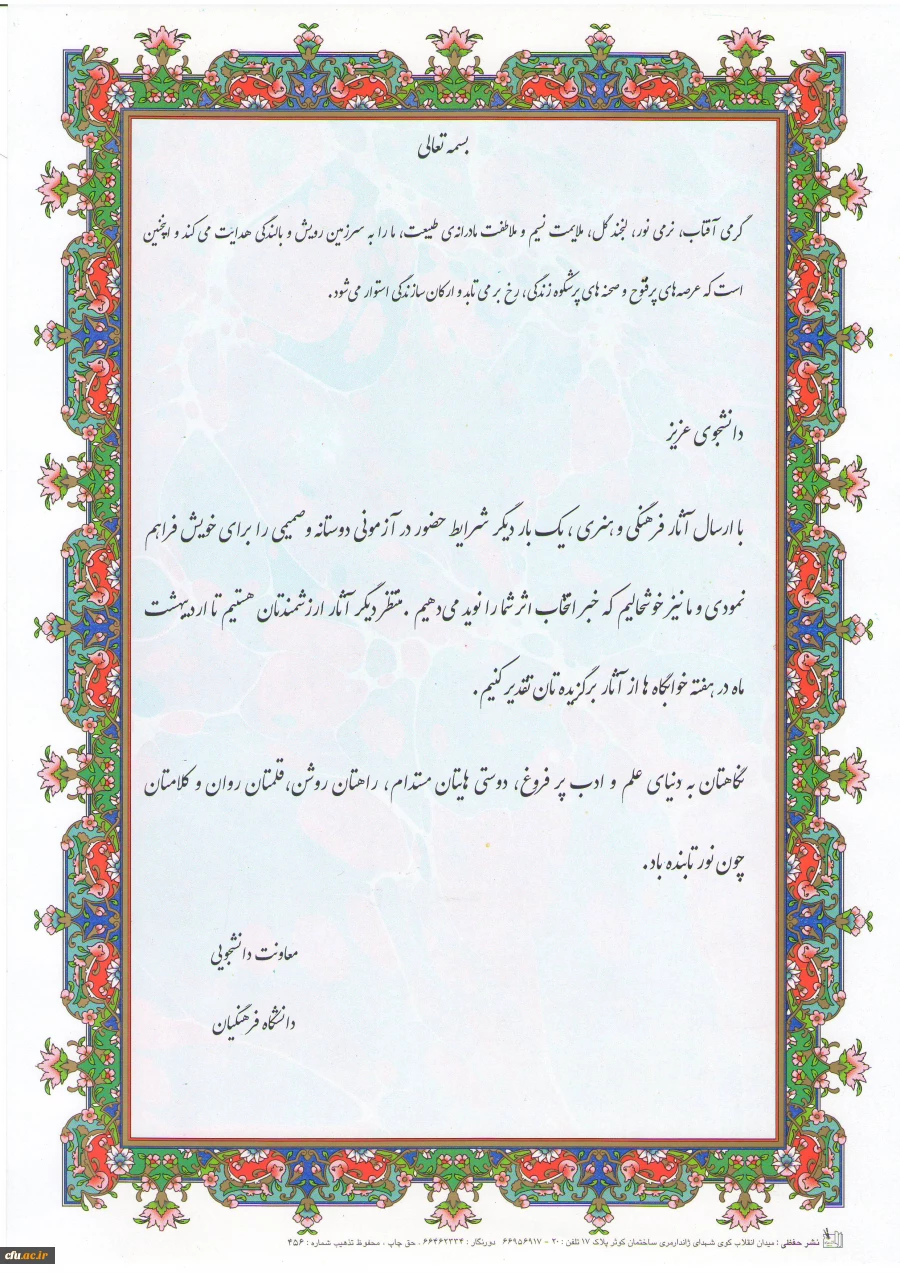 بسمه تعالی
گرمی آفتاب، نرمی نور، لبخند گل، ملایمت نسیم و ملاطفت مادرانه‌ی طبیعت، ما را به سرزمین رویش و بالندگی هدایت می کند و اینچنین
است که عرصه‌های پرفتوح و صحنه های پرشکوه زندگی، رخ بر می تابد و ارکان سازندگی استوار می‌شود.
دانشجوی عزیز
با ارسال آثار فرهنگی و هنری ، یک بار دیگر شرایط حضور در آزمونی دوستانه و صمیمی را برای خویش فراهم
نمودی و ما نیز خوشحالیم که خبر انتخاب اثر شما را نوید می‌دهیم . منتظر دیگر آثار ارزشمندتان هستیم تا اردیبهشت
ماه در هفته خوابگاه ها از آثار برگزیده تان تقدیر کنیم .
نگاهتان به دنیای علم و ادب پر فروغ، دوستی هایتان مستدام، راهتان روشن، قلمتان روان و کلامتان
چون نور تابنده باد.
معاونت دانشجویی
دانشگاه فرهنگیان
نشر حفظی : میدان انقلاب کوی شهدای ژاندارمری ساختمان کوثر پلاک ۱۷ تلفن : ۲۰ - ۶۶۹۵۶۹۱۷ دورنگار : ۶۶۴۶۲۳۳۴ ، حق چاپ ، محفوظ تذهیب شماره : ۴۵۶
cfu.ac.ir